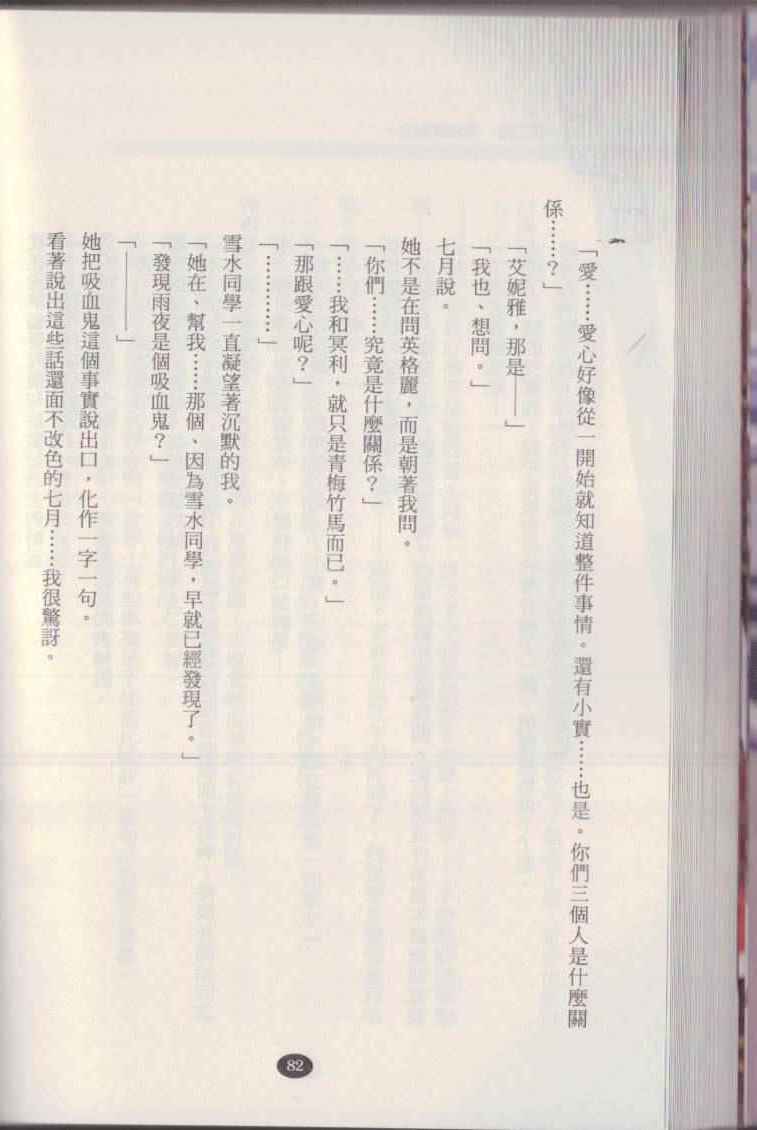 「愛……愛心好像從一開始就知道整件事情。還有小實……也是。你們三個人是什麼關
係……？」
「艾妮雅，那是——」
「我也、想問。」
七月說。
她不是在問英格麗，而是朝著我問。
「你們……究竟是什麼關係？」
「……我和冥利，就只是青梅竹馬而已。」
「那跟愛心呢？」
「…………」
雪水同學一直凝望著沉默的我。
「她在、幫我……那個、因為雪水同學，早就已經發現了。」
「發現雨夜是個吸血鬼？」
「————」
她把吸血鬼這個事實說出口，化作一字一句。
看著說出這些話還面不改色的七月……我很驚訝。
82